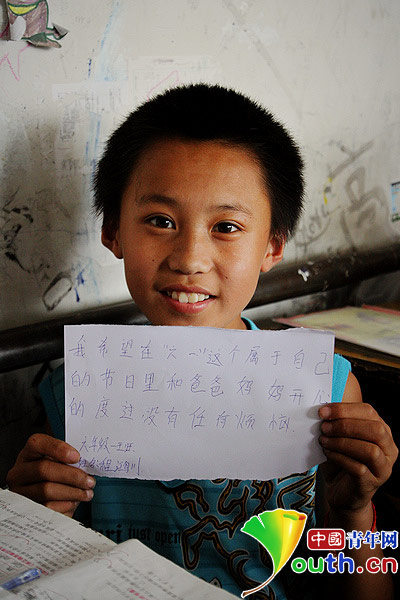 我希望在"六一"这个属于自己
的节日里和爸爸妈妈开心
的度过没有任何烦恼
六年级一班
just open
中国青年网
Youth.cn